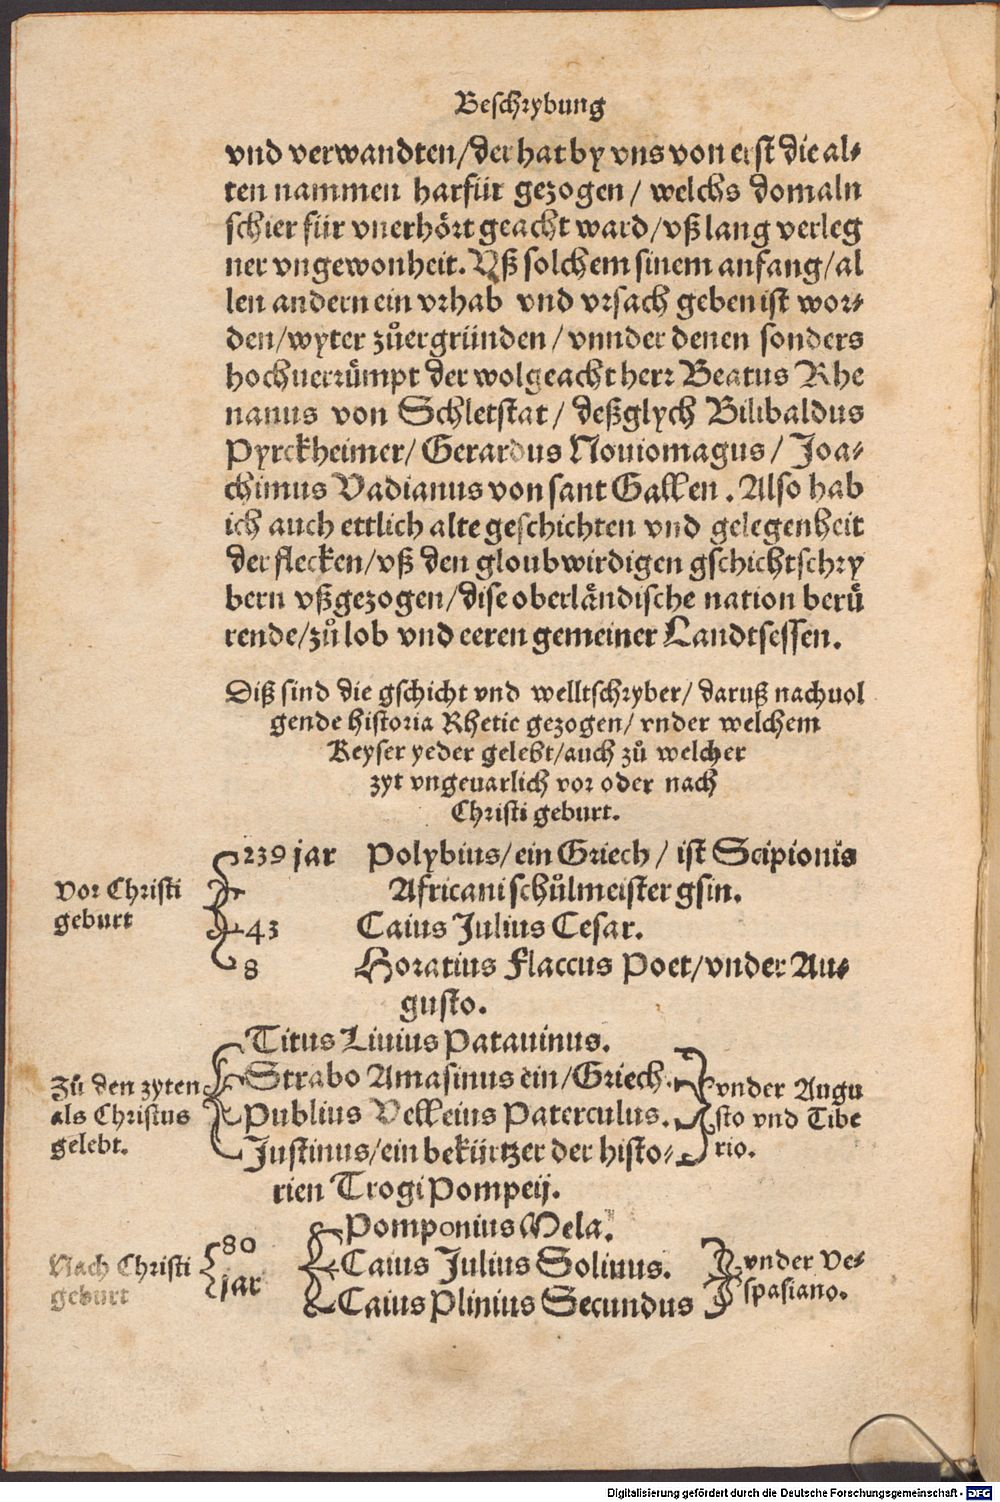 Beschrybung
vnd verwandten/der hat by vns von erst die al⸗
ten nammen harfür gezogen / welchs domaln
schier für vnerhört geacht ward/vß lang verleg
ner vngewonheit. Vß solchem sinem anfang/al
len andern ein vrhab vnd vrsach geben ist wor⸗
den/wyter zůergründen / vnnder denen sonders
hochuerrümpt der wolgeacht herr Beatus Rhe
nanus von Schletstat / deßglych Bilibaldus
Pyrckheimer/ Gerardus Nouiomagus / Joa⸗
chimus Vadianus von sant Gallen . Also hab
ich auch ettlich alte geschichten vnd gelegenheit
der flecken/vß den gloubwirdigen gschichtschry
bern vßgezogen/dise oberländische nation berü
rende/zů lob vnd eeren gemeiner Landtsessen.
Diß sind die gschicht vnd welltschryber/ daruß nachuol
gende historia Rhetie gezogen/ vnder welchem
Keyser yeder gelebt/auch zů welcher
zyt vngeuarlich vor oder nach
Christi geburt.
Vor Christi
geburt
239 jar Polybius/ein Griech / ist Scipionis
Africani schůlmeister gsin.
43 Caius Julius Cesar.
8 Horatius Flaccus Poet/vnder Au⸗
gusto.
Zů den zyten
als Christus
gelebt.
Titus Liuius Patauinus.
Strabo Amasinus ein/Griech.
Publius Velleius Paterculus.
Justinus/ein bekürtzer der histo⸗
rien Trogi Pompeij.
vnder Augu
sto vnd Tibe
rio.
Nach Christi
geburt
80
jar
Pomponius Mela.
Caius Julius Solinus.
Caius Plinius Secundus
vnder Ve⸗
spasiano.
Digitalisierung gefördert durch die Deutsche Forschungsgemeinschaft - DFG